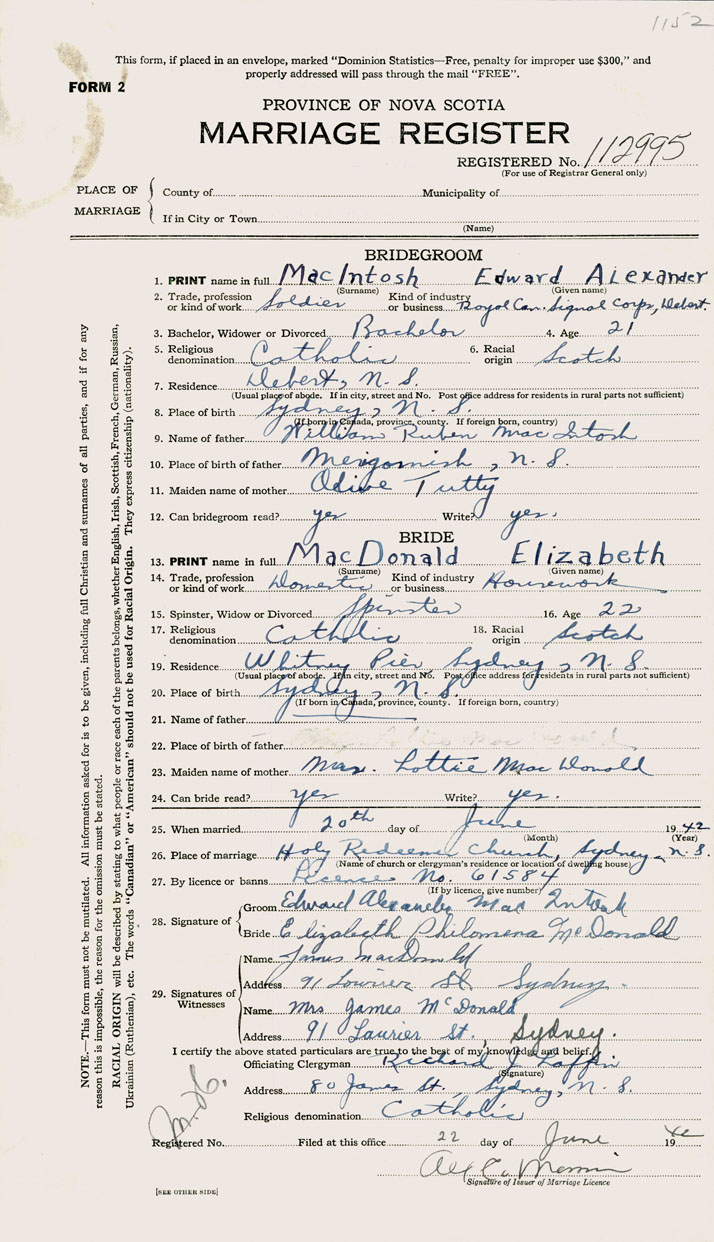 1152
This form, if placed in an envelope, marked "Dominion Statistics—Free, penalty for improper use $300," and
properly addressed will pass through the mail "FREE".
FORM 2
PROVINCE OF NOVA SCOTIA
MARRIAGE REGISTER
REGISTERED No. 112995
(For use of Registrar General only)
PLACE OF MARRIAGE
County of Municipality of
If in City or Town
(Name)
BRIDEGROOM
1. PRINT name in full MacIntosh Edward Alexander
(Surname) (Given name)
2. Trade, profession or kind of work Soldier Kind of industry or business Royal Can. Signal Corps, Debert.
3. Bachelor, Widower or Divorced Bachelor 4. Age 21
5. Religious denomination Catholic 6. Racial origin Scotch
7. Residence Debert, N. S.
(Usual place of abode. If in city, street and No. Post office address for residents in rural parts not sufficient)
8. Place of birth Sydney, N. S.
(If born in Canada, province, county. If foreign born, country)
9. Name of father William Ruben MacIntosh
10. Place of birth of father Merigomish, N. S.
11. Maiden name of mother Odive Tutty
12. Can bridegroom read? yes Write? yes.
BRIDE
13. PRINT name in full MacDonald Elizabeth
(Surname) (Given name)
14. Trade, profession or kind of work Domestic Kind of industry or business Housework
15. Spinster, Widow or Divorced Spinster 16. Age 22
17. Religious denomination Catholic 18. Racial origin Scotch
19. Residence Whitney Pier, Sydney, N. S.
(Usual place of abode. If in city, street and No. Post office address for residents in rural parts not sufficient)
20. Place of birth Sydney, N. S.
(If born in Canada, province, county. If foreign born, country)
21. Name of father
22. Place of birth of father
23. Maiden name of mother Mrs. Lottie MacDonald
24. Can bride read? yes Write? yes.
25. When married 20th day of June 1942
(Month) (Year)
26. Place of marriage Holy Redeemer Church, Sydney, N. S.
(Name of church or clergyman's residence or location of dwelling house)
27. By licence or banns Licence No. 61584
(If by licence, give number)
28. Signature of
Groom Edward Alexander MacIntosh
Bride Elizabeth Philomena McDonald
29. Signatures of Witnesses
Name James MacDonald
Address 91 Laurier St Sydney.
Name Mrs James McDonald
Address 91 Laurier St., Sydney.
I certify the above stated particulars are true to the best of my knowledge and belief.
Officiating Clergyman Richard J. Laffin
(Signature)
Address 80 James St., Sydney, N. S.
Religious denomination Catholic
Registered No. Filed at this office 22 day of June 1942
Signature of Issuer of Marriage Licence
[SEE OTHER SIDE]
NOTE.—This form must not be mutilated. All information asked for is to be given, including full Christian and surnames of all parties, and if for any
reason this is impossible, the reason for the omission must be stated.
RACIAL ORIGIN will be described by stating to what people or race each of the parents belongs, whether English, Irish, Scottish, French, German, Russian,
Ukrainian (Ruthenian), etc. The words "Canadian" or "American" should not be used for Racial Origin. They express citizenship (nationality).